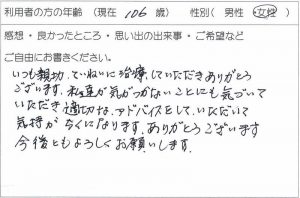 利用者の方の年齢（現在 106 歳） 性別（ 男性 女性 ）
感想・良かったところ・思い出の出来事・ご希望など
ご自由にお書きください。
いつも親切、ていねいに治療していただきありがとう
ございます。私達が気がつかないことにも気づいて
いただき適切な、アドバイスをして、いただいて
気持が らくになります。ありがとうございます
今後ともよろしくお願いします。